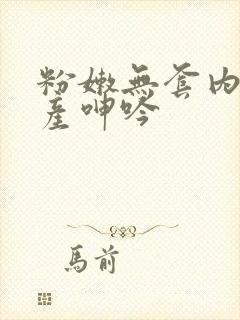 粉嫩無套内
産呻吟
馬前